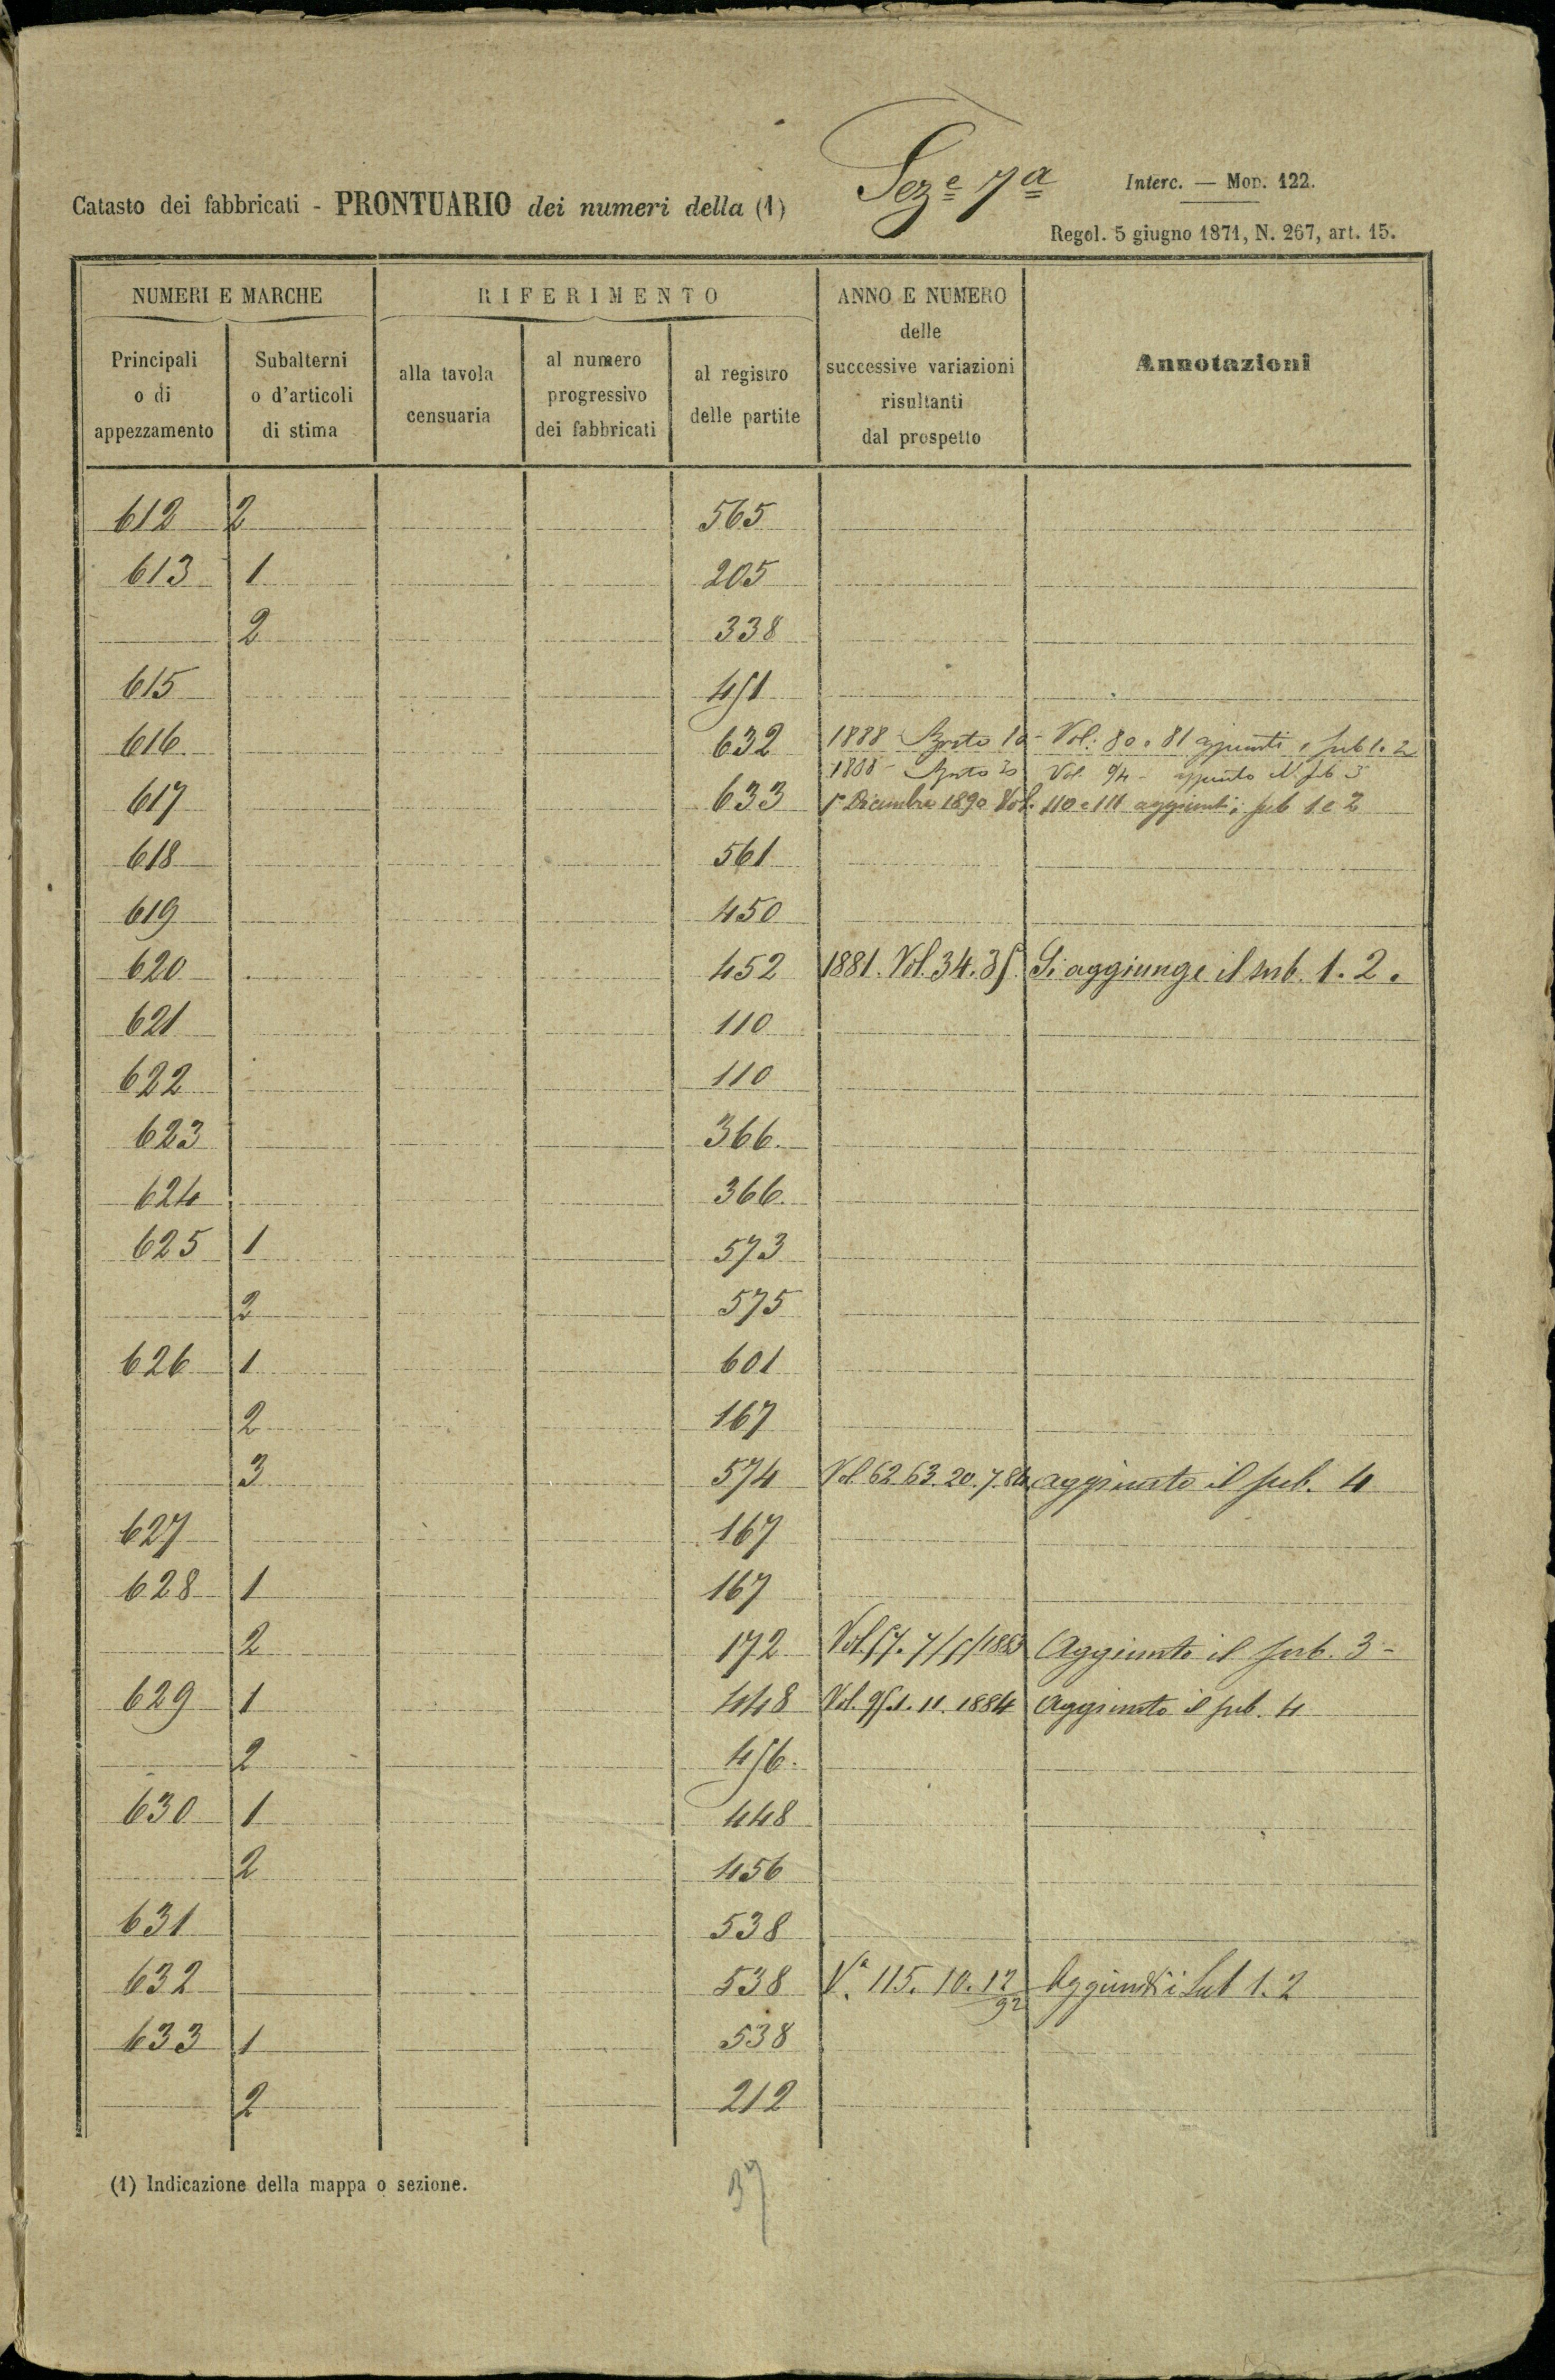 Catasto dei fabbricati - PRONTUARIO dei numeri della (1) Seze 7a
Interc. — Mod. 122.
Regol. 5 giugno 1871, N. 267, art. 15.
NUMERI E MARCHE
RIFERIMENTO
ANNO E NUMERO
delle
successive variazioni
risultanti
dal prospetto
Annotazioni
Principali
o di
appezzamento
Subalterni
o d'articoli
di stima
alla tavola
censuaria
al numero
progressivo
dei fabbricati
al registro
delle partite
612 2 565
613 1 205
2 338
615 451
616 632 1888 Agosto 10 - Vol. 80 e 81 aggiunti i sub 1. 2
1888 - Agosto Vol. aggiunto il sub 3
617 633 1° Dicembre 1890 Vol. 110 e 111 aggiunti i sub 1 e 2
618 561
619 450
620 452 1881. Vol. 34. 35. Si aggiunge il sub. 1. 2.
621 110
622 110
623 366.
624 366.
625 1 573
2 575
626 1 601
2 167
3 574 Vol. 62. 63. 20. 7. 84 aggiunto il sub. 4
627 167
628 1 167
2 172 Vol. 57. 7/5/1883 Aggiunto il sub. 3 -
629 1 448 Vol. 95. 1. 11. 1884 Aggiunto il sub. 4
2 456.
630 1 448
2 456
631 538
632 538 V. 115. 10. 12 92 Aggiunti i Sub 1. 2
633 1 538
2 212
(1) Indicazione della mappa o sezione.
37